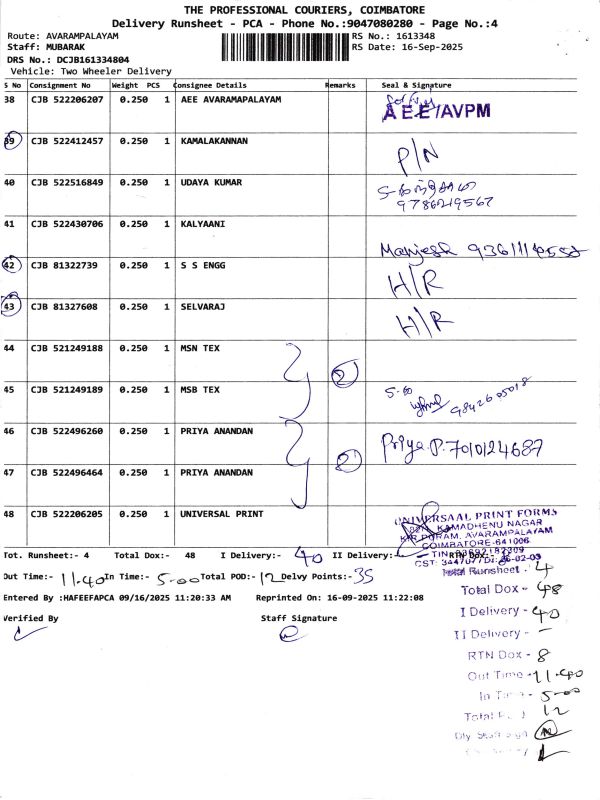 THE PROFESSIONAL COURIERS, COIMBATORE
Delivery Runsheet - PCA - Phone No.:9047080280 - Page No.:4
Route: AVARAMPALAYAM
RS No.: 1613348
Staff: MUBARAK
RS Date: 16-Sep-2025
DRS No.: DCJB161334804
Vehicle: Two Wheeler Delivery
S No Consignment No Weight PCS Consignee Details Remarks Seal & Signature
38 CJB 522206207 0.250 1 AEE AVARAMAPALAYAM AEE/AVPM
39 CJB 522412457 0.250 1 KAMALAKANNAN P/N
40 CJB 522516849 0.250 1 UDAYA KUMAR
9786219567
41 CJB 522430706 0.250 1 KALYAANI
Manjesh
42 CJB 81322739 0.250 1 S S ENGG H/R
43 CJB 81327608 0.250 1 SELVARAJ H/R
44 CJB 521249188 0.250 1 MSN TEX 2
45 CJB 521249189 0.250 1 MSB TEX 9842605018
46 CJB 522496260 0.250 1 PRIYA ANANDAN Priya.P.7010124687
47 CJB 522496464 0.250 1 PRIYA ANANDAN 2
48 CJB 522206205 0.250 1 UNIVERSAL PRINT
UNIVERSAAL PRINT FORMS
KAMADHENU NAGAR
PURAM, AVARAMPALAYAM
COIMBATORE-641006
Tot. Runsheet:- 4 Total Dox:- 48 I Delivery:- 40 II Delivery:- RTN Dox:-
Out Time:- 11.40 In Time:- 5-00 Total POD:- 12 Delvy Points:- 35
Entered By :HAFEEFAPCA 09/16/2025 11:20:33 AM Reprinted On: 16-09-2025 11:22:08
Verified By Staff Signature
Total Runsheet - 4
Total Dox - 48
I Delivery - 40
II Delivery - –
RTN Dox - 8
Out Time - 11.40
In Time - 5-00
Total 12